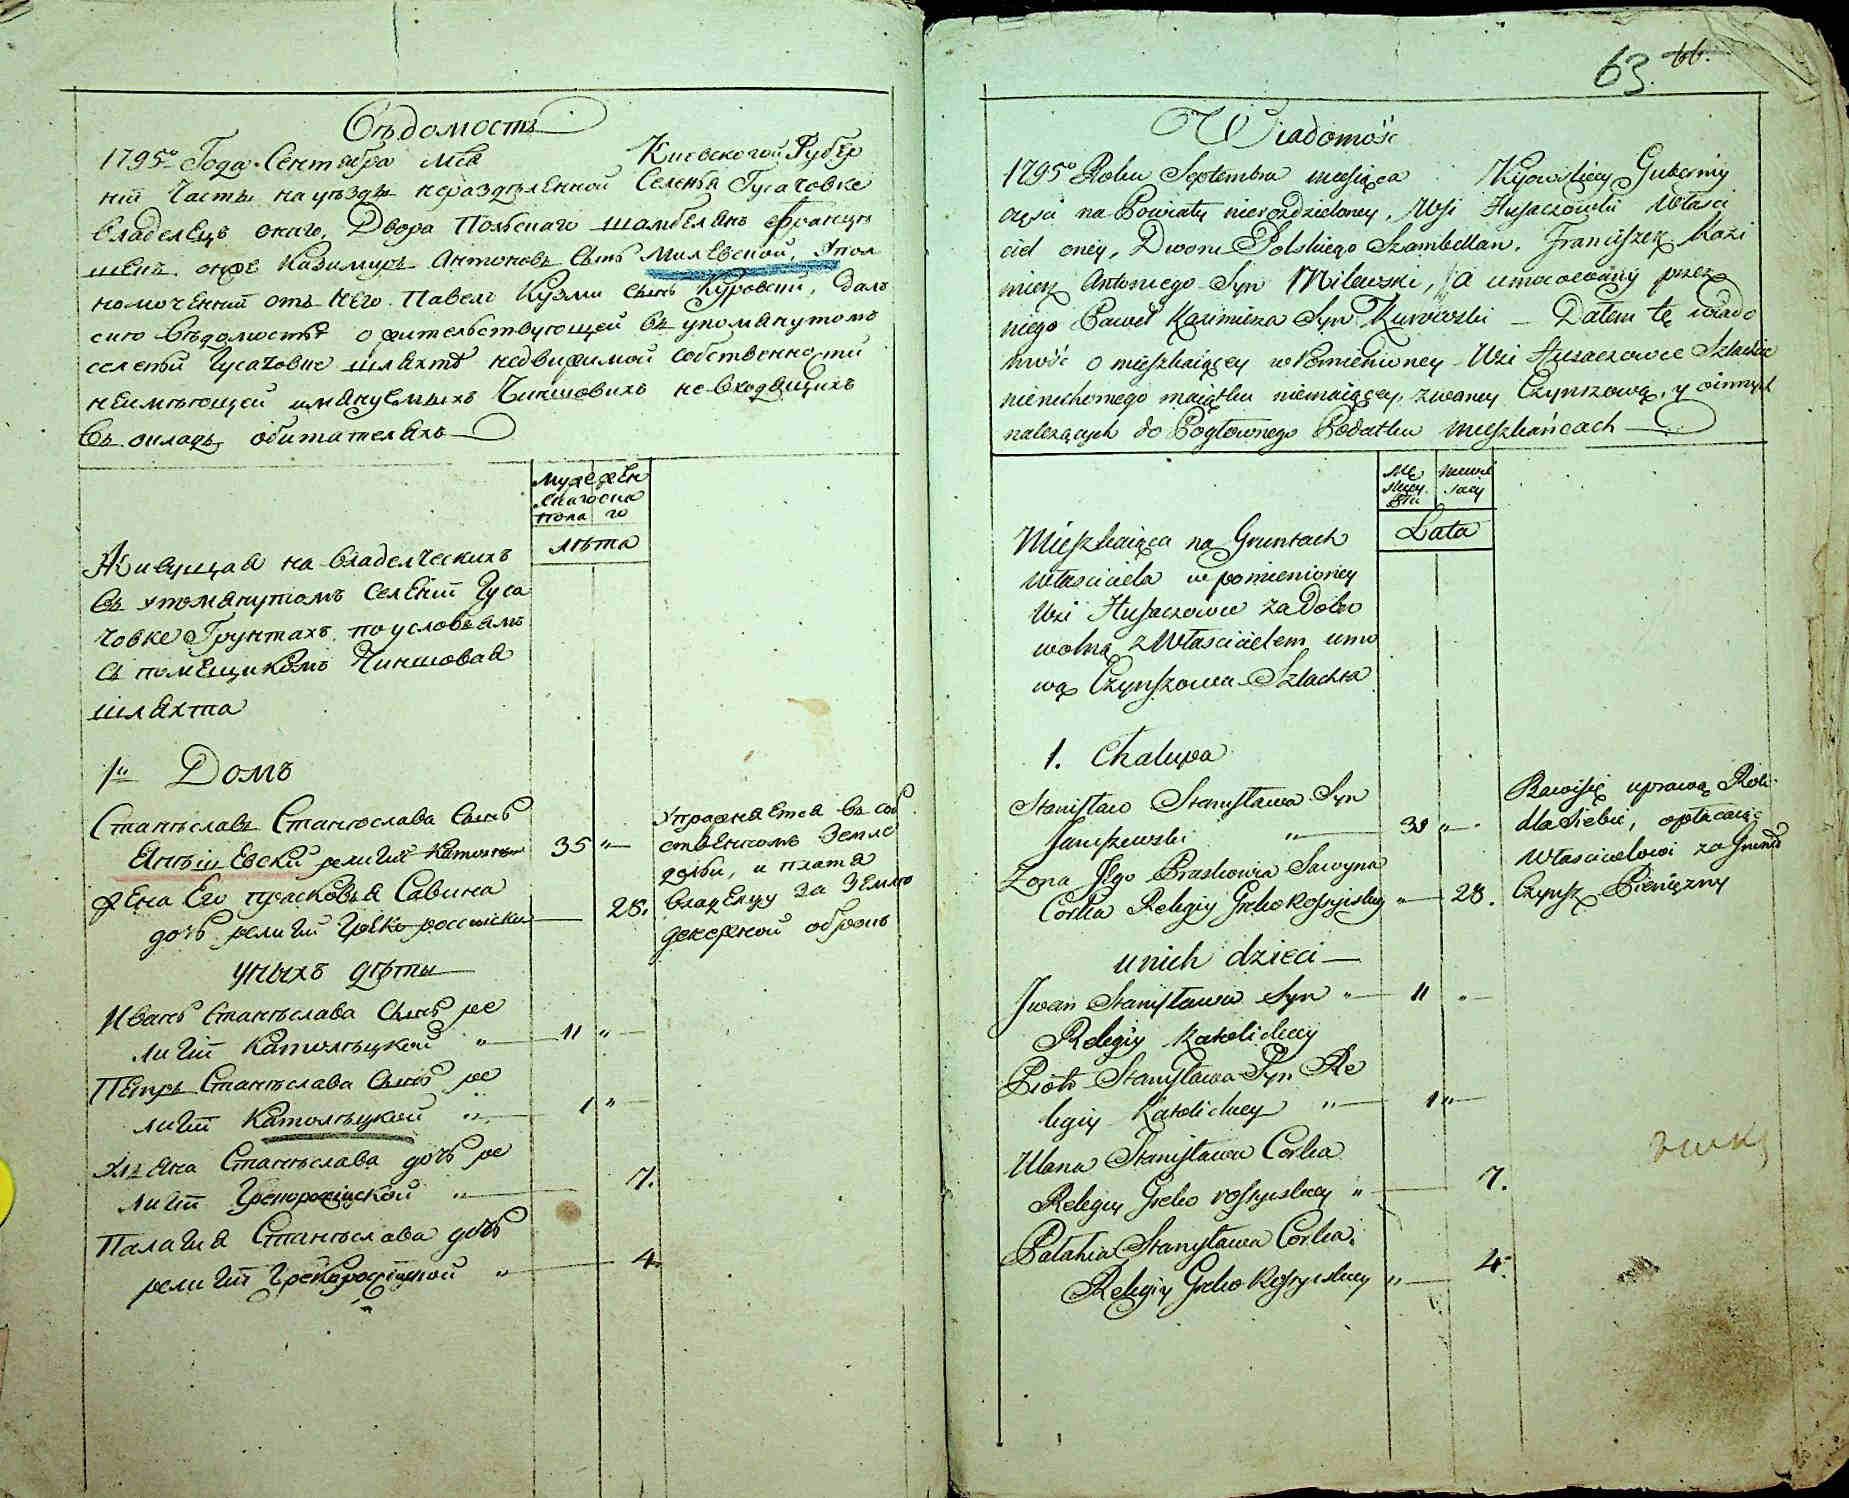 Вѣдомость
1795го Года Сентября мца Киевской Губер
нии Часты на уѣзды нераздѣленной Селения Гусачовке
владелецъ оного, Двора Польскаго шамбелянъ Францы
шекъ онже Казимиръ Антоновъ сынъ Милевский, Упол
номоченний отъ него Павелъ Кузми сынъ Куровский, далъ
сию вѣдомость о жительствующей въ упомянутомъ
селений Гусачовке шляхтѣ недвижимой собственности
неимѣющей имянуемыхъ Чиншовихъ не входящихъ
въ окладъ обитателяхъ
муже жен
скаго ска
пола го
лѣта
Живущая на владелческихъ
въ упомянутомъ Селений Гуса
човке Грунтахъ по условиямъ
съ помещикомъ Чиншовая
шляхта
1й Домъ
Станѣславъ Станѣслава сынъ
Янѣшевский религий Католиц 35 "
жена Его прасковья Савина
дочь религий Греко россииской 28.
Упражняется въ соб
ственномъ Земле
делии, и платя
владелцу за землю
денежной оброкъ
у ныхъ дѣты
Иванъ Станѣслава сынъ ре
лигий Католѣцкой " 11 "
Петръ Станѣслава сынъ ре
лигий Католѣцкой " 1 "
Уляна Станѣслава дочь ре
лигий Грекоросийской " 7.
Палагия Станѣслава дочь
религий Грекоросийской " 4.
63. 66.
Wiadomość
1795o Roku Septembra miesiąca Kijowskiey Guberniy
części na Powiaty nierozdzieloney, Wsi Husaczowki Właści
ciel oney, Dworu Polskiego Szambellan, Franciszek Kazi
mierz Antoniego Syn Milewski, A umocowany przez
niego Paweł Kazimierza Syn Kurowski Dałem tę wiado
mość o mieszkaiącey w Pomienioney Wsi Husaczowce Szlachcie
nieruchomego maiątku niemaiącey, zwaney Czynszową, y innych
należących do Pogłownego Podatku mieszkańcach
Mę
skiey
Płci
Lata
Mieszkaiąca na Gruntach
właściciela w pomienioney
Wsi Husaczowce za Dobro
wolną z Właścicielem umo
wą Czynszowa Szlachta
1. Chałupa
Stanisław Stanisława Syn
Janiszewski " 35 "
Żona Jego Praskowia Sawyna
Corka Religiy Greko Rossyiskiey " 28.
Bawi się uprawą Roli
dla siebie, opłacaiąc
Właścicielowi za Grunt
Czynsz Pieniężny
u nich dzieci
Jwan Stanisława Syn " 11 "
Religiy Katolickiey
Piotr Stanisława Syn Re
ligiy Katolickiey " 1 "
Ulana Stanisława Corka
Religiy Greko rossyiskiey " 7.
Pałahia Stanisława Corka
Religiy Greko Rossyiskiey " 4.